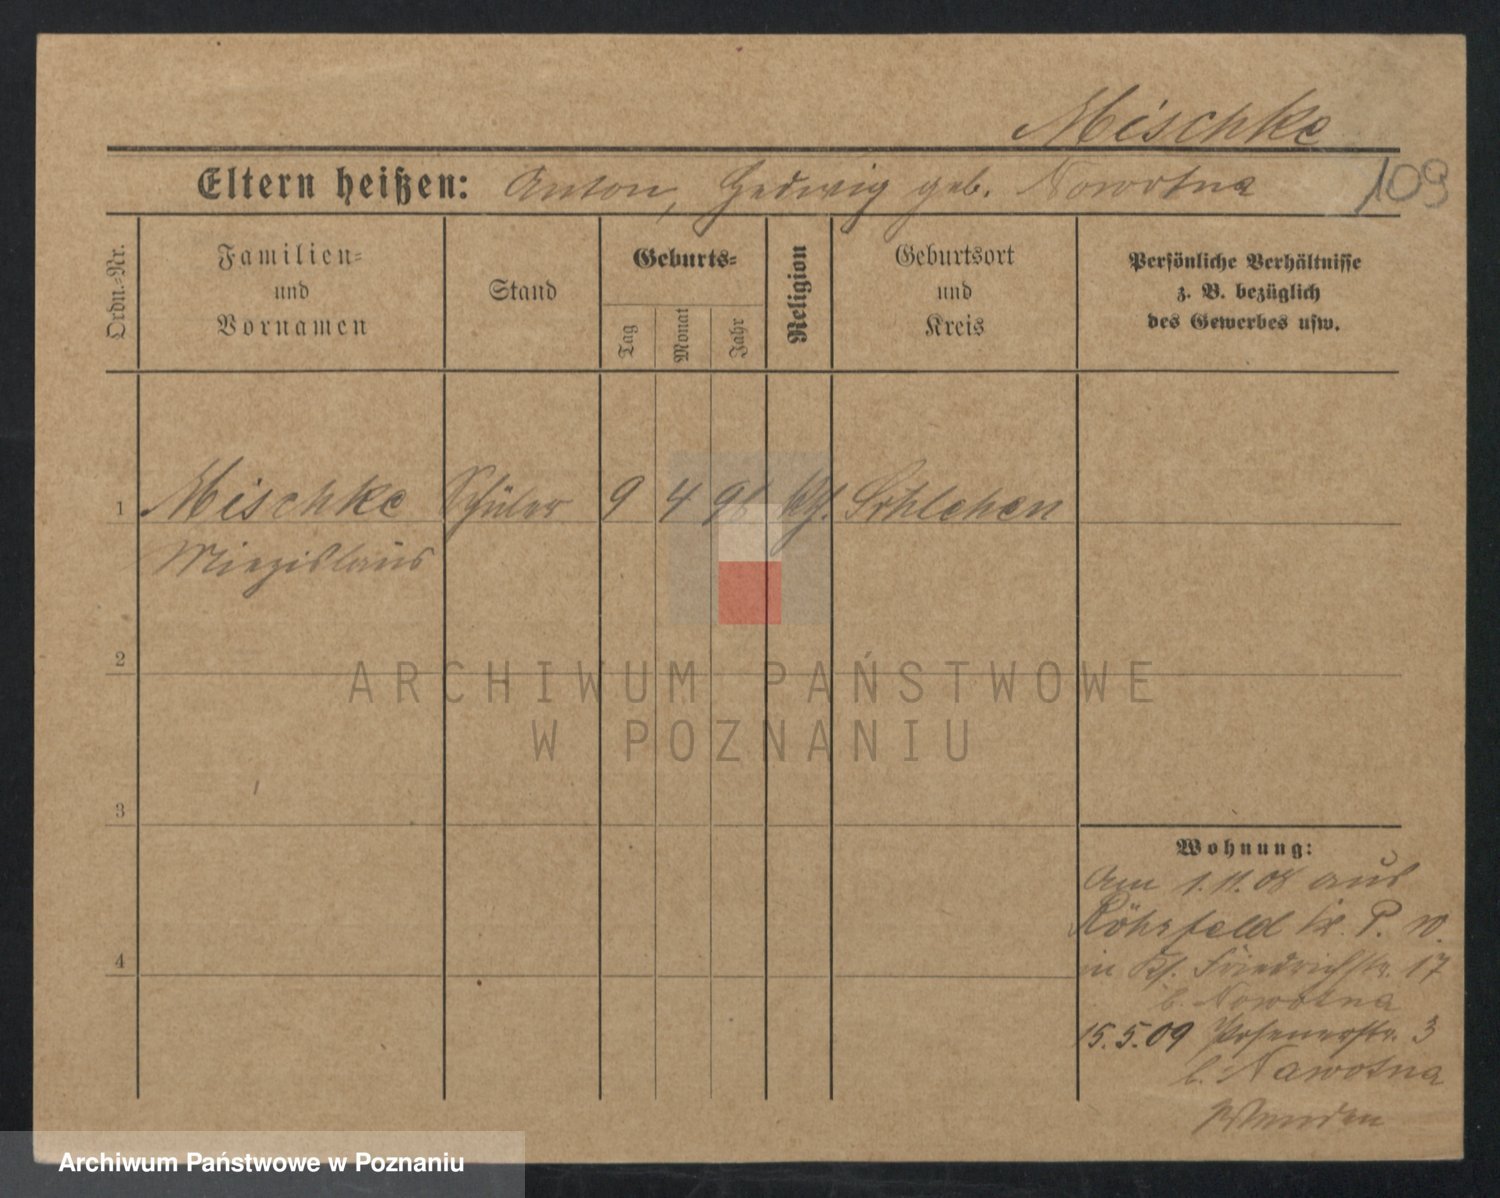 Mischke
Eltern heißen: Anton, Hedwig geb. Nowotna
109
Ordn.-Nr.
Familien-
und
Vornamen
Stand
Geburts-
Tag
Monat
Jahr
Religion
Geburtsort
und
Kreis
Persönliche Verhältnisse
z. B. bezüglich
des Gewerbes usw.
1 Mischke Schüler 9 4 98
Miezislaus
2
3
4
Wohnung:
Am 1.11.08 aus
Röhrfeld Kr. P. W.
in Friedrichstr. 17
b. Nowotna
15.5.09 Posenerstr. 3
b. Nawotna
ARCHIWUM PAŃSTWOWE
W POZNANIU
Archiwum Państwowe w Poznaniu